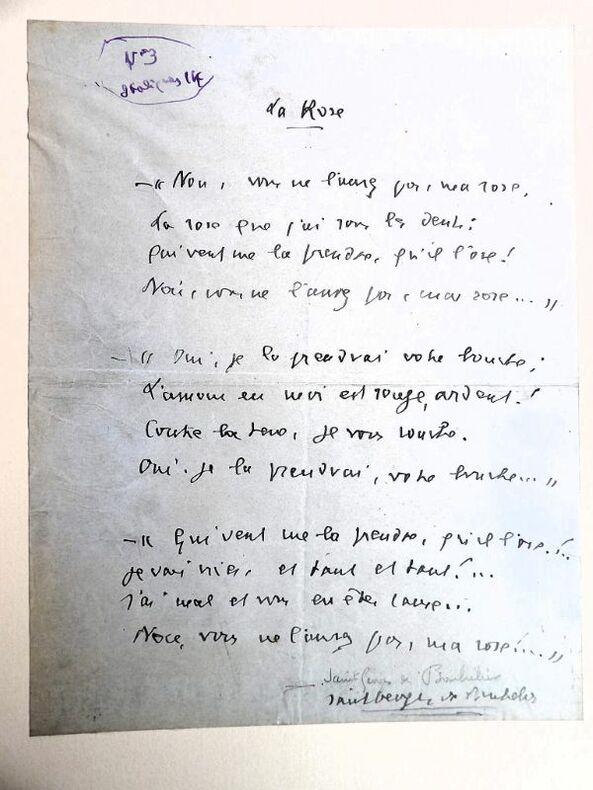 N°3
La Rose
— « Non, vous ne l'aurez pas, ma rose,
La rose que j'ai sous les dents !
Qui veut me la prendre, qu'il l'ose !
Non, vous ne l'aurez pas, ma rose... »
— « Oui, je la prendrai votre bouche ;
L'amour en moi est rouge, ardent !
Contre la , je vous couche.
Oui. Je la prendrai, votre bouche... »
— « Qui veut me la prendre, qu'il l'ose !..
Je vais rire, et tant et tant !...
J'ai mal et vous en êtes cause...
Non, vous ne l'aurez pas, ma rose !... »
Saint Georges de Bouhélier
Saint Georges de Bouhélier